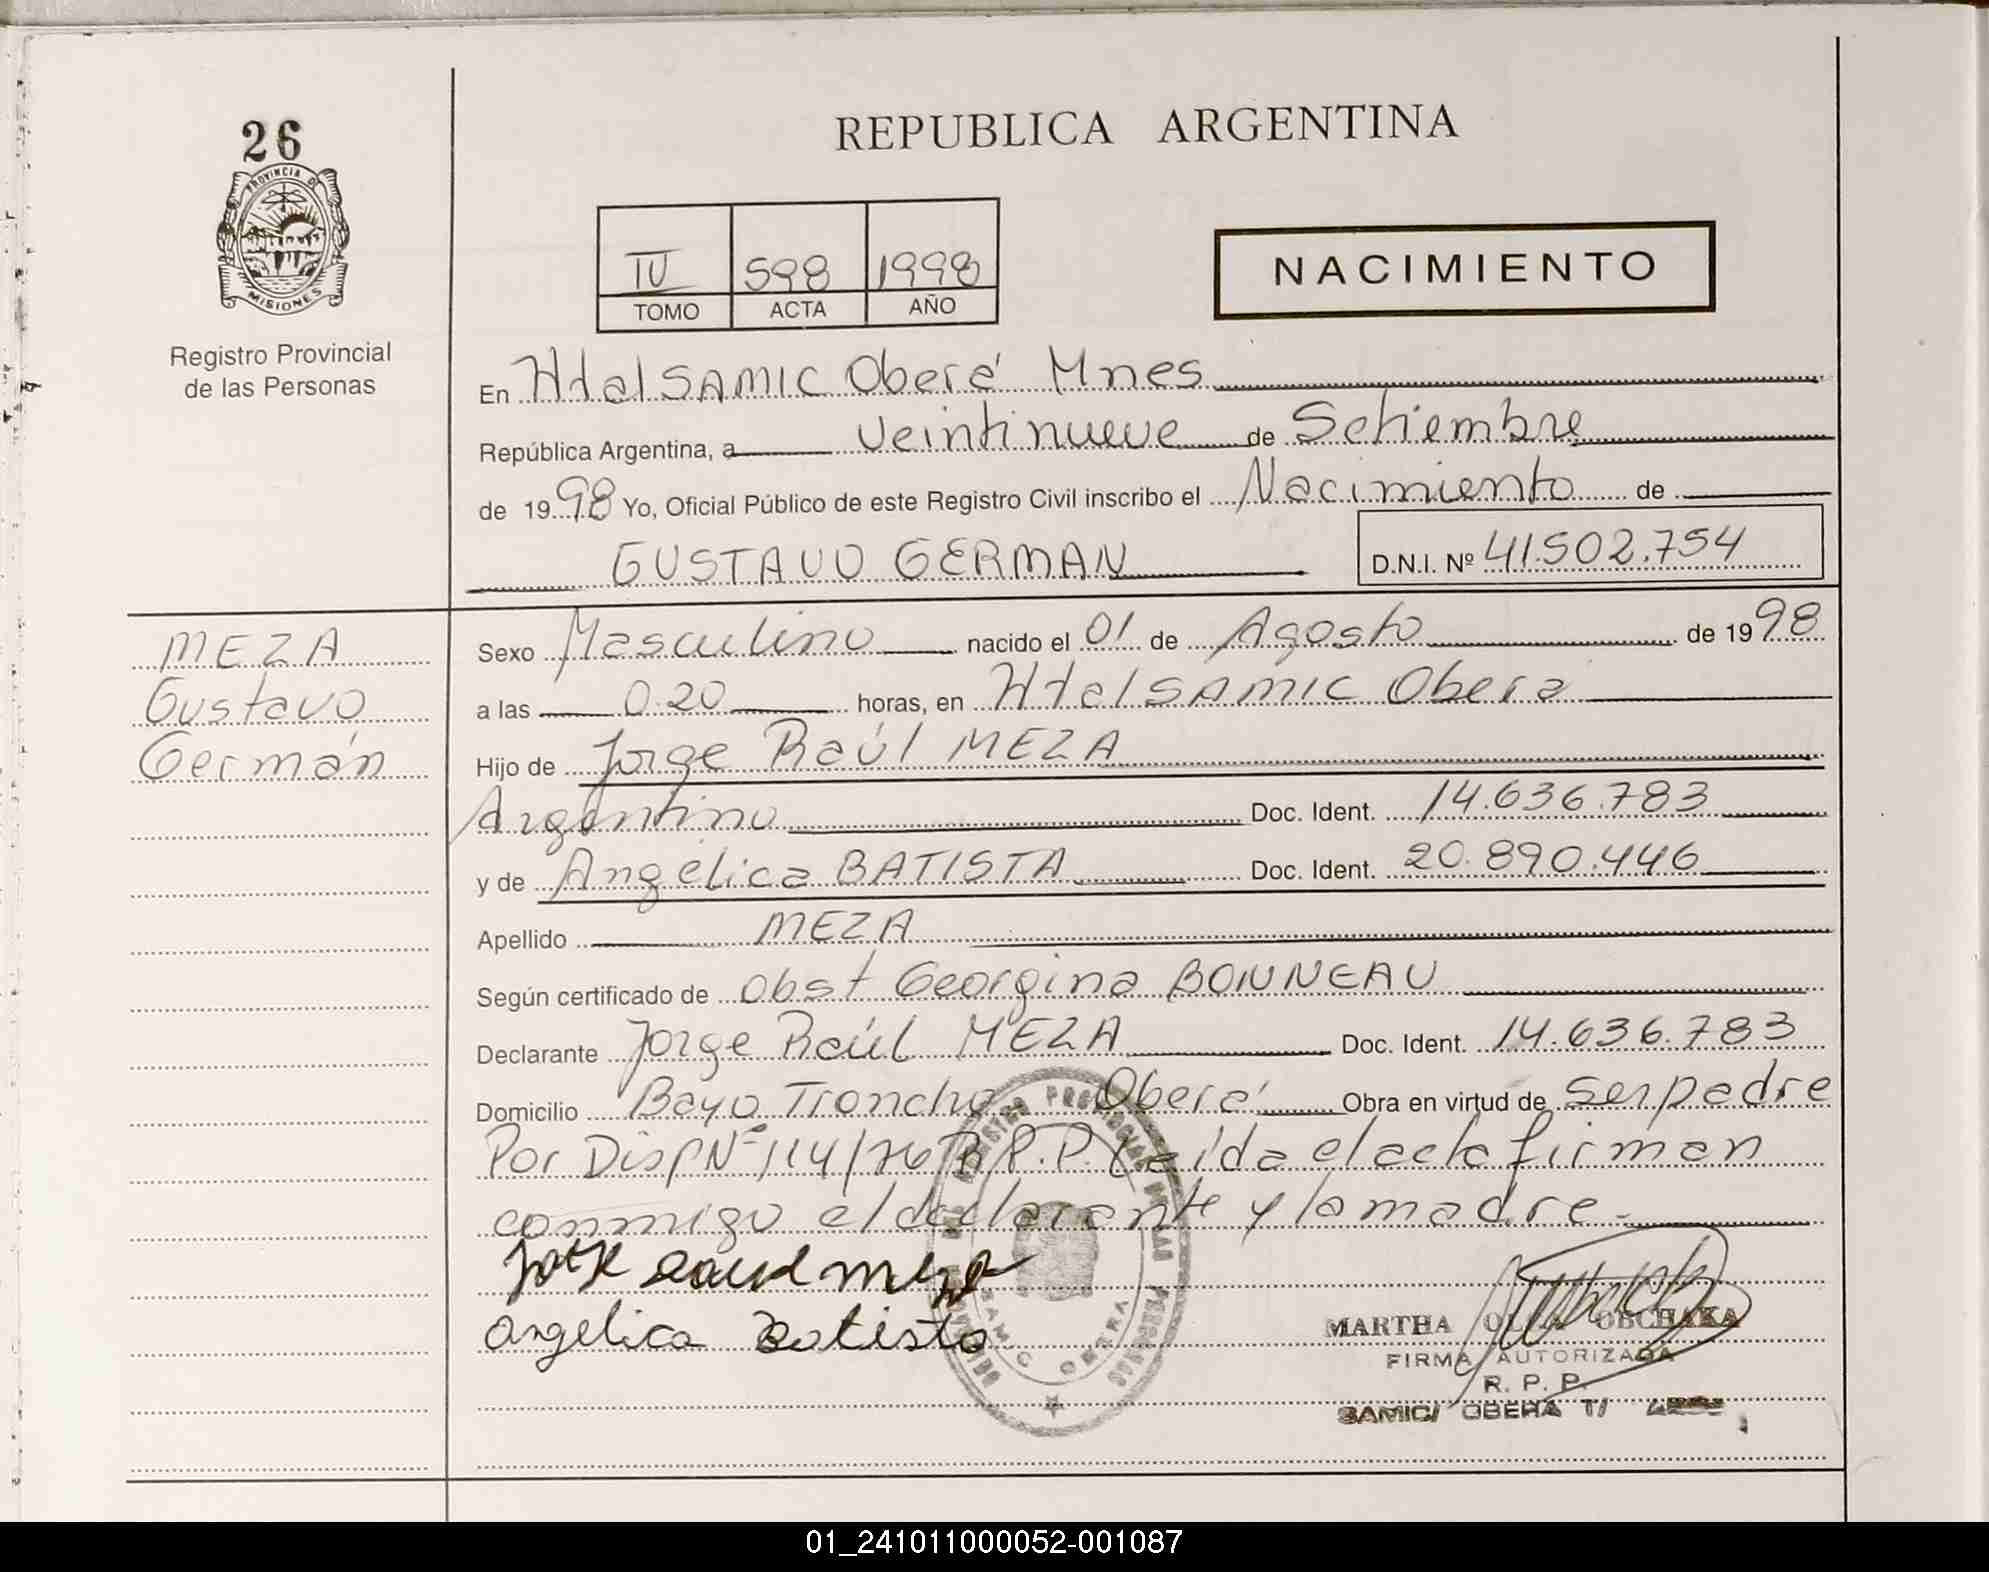 26
PROVINCIA D
MISIONES
Registro Provincial
de las Personas
REPUBLICA ARGENTINA
IV 598 1998
TOMO ACTA AÑO
NACIMIENTO
En Htal SAMIC Oberá Mnes
República Argentina, a veintinueve de Setiembre
de 1998 Yo, Oficial Público de este Registro Civil inscribo el Nacimiento de
GUSTAVO GERMAN D.N.I. Nº 41.502.754
MEZA
Gustavo
Germán
Sexo Masculino nacido el 01 de Agosto de 1998
a las 0.20 horas, en Htal SAMIC Obera
Hijo de Jorge Raúl MEZA
Argentino Doc. Ident. 14.636.783
y de Angélica BATISTA Doc. Ident. 20.890.446
Apellido MEZA
Según certificado de Obst Georgina BONNEAU
Declarante Jorge Raúl MEZA Doc. Ident. 14.636.783
Domicilio Bayo Troncho Oberá Obra en virtud de ser padre
Por Disp Nº 114/76 R.P.P. Leída el acta firman
conmigo el declarante y la madre.
Jorge Raul Meza
Angelica Batista
MARTHA OBCHAKA
FIRMA AUTORIZADA
R. P. P.
SAMIC/ OBERA T/
01_241011000052-001087